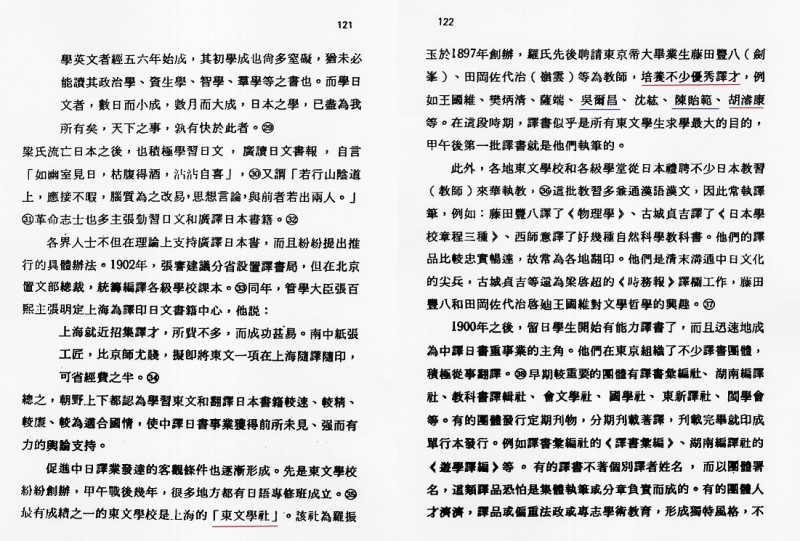 121
學英文者經五六年始成，其初學成也尙多窒礙，猶未必
能讀其政治學、資生學、智學、羣學等之書也。而學日
文者，數日而小成，數月而大成，日本之學，已盡為我
所有矣，天下之事，孰有快於此者。㉙
梁氏流亡日本之後，也積極學習日文，廣讀日文書報，自言
「如幽室見日，枯腹得酒，沾沾自喜」，㉚又謂「若行山陰道
上，應接不暇，腦質為之改易，思想言論，與前者若出兩人。」
㉛革命志士也多主張勤習日文和廣譯日本書籍。㉜
各界人士不但在理論上支持廣譯日本書，而且紛紛提出推
行的具體辦法。1902年，張謇建議分省設置譯書局，但在北京
置文部總裁，統籌編譯各級學校課本。㉝同年，管學大臣張百
熙主張明定上海為譯印日文書籍中心，他說：
上海就近招集譯才，所費不多，而成功甚易。南中紙張
工匠，比京師尤賤，擬卽將東文一項在上海隨譯隨印，
可省經費之半。㉞
總之，朝野上下都認為學習東文和翻譯日本書籍較速、較精、
較廉、較為適合國情，使中譯日書事業獲得前所未見、强而有
力的輿論支持。
促進中日譯業發達的客觀條件也逐漸形成。先是東文學校
紛紛創辦，甲午戰後幾年，很多地方都有日語專修班成立。㉟
最有成績之一的東文學校是上海的「東文學社」。該社為羅振
122
玉於1897年創辦，羅氏先後聘請東京帝大畢業生藤田豐八（劍
峯）、田岡佐代治（嶺雲）等為教師，培養不少優秀譯才，例
如王國維、樊炳清、薩端、吳爾昌、沈紘、陳貽範、胡濬康
等。在這段時期，譯書似乎是所有東文學生求學最大的目的，
甲午後第一批譯書就是他們執筆的。
此外，各地東文學校和各級學堂從日本禮聘不少日本教習
（教師）來華執教，㊱這批教習多兼通漢語漢文，因此常執譯
筆，例如：藤田豐八譯了《物理學》、古城貞吉譯了《日本學
校章程三種》、西師意譯了好幾種自然科學教科書。他們的譯
品比較忠實暢達，故常為各地翻印。他們是清末溝通中日文化
的尖兵，古城貞吉等還為梁啓超的《時務報》譯稿工作，藤田
豐八和田岡佐代治啓迪王國維對文學哲學的興趣。㊲
1900年之後，留日學生開始有能力譯書了，而且迅速地成
為中譯日書重事業的主角。他們在東京組織了不少譯書團體，
積極從事翻譯。㊳早期較重要的團體有譯書彙編社、湖南編譯
社、教科書譯輯社、會文學社、國學社、東新譯社、閩學會
等。有的團體發行定期刊物，分期刊載著譯，刊載完畢就印成
單行本發行。例如譯書彙編社的《譯書彙編》、湖南編譯社的
《遊學譯編》等。有的譯書不著個別譯者姓名，而以團體署
名，這類譯品恐怕是集體執筆或分章負責而成的。有的團體人
才濟濟，譯品或偏重法政或專志學術教育，形成獨特風格，不